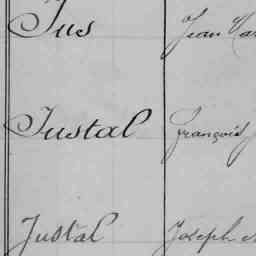 Jus Jean
Justal François
Justal Joseph